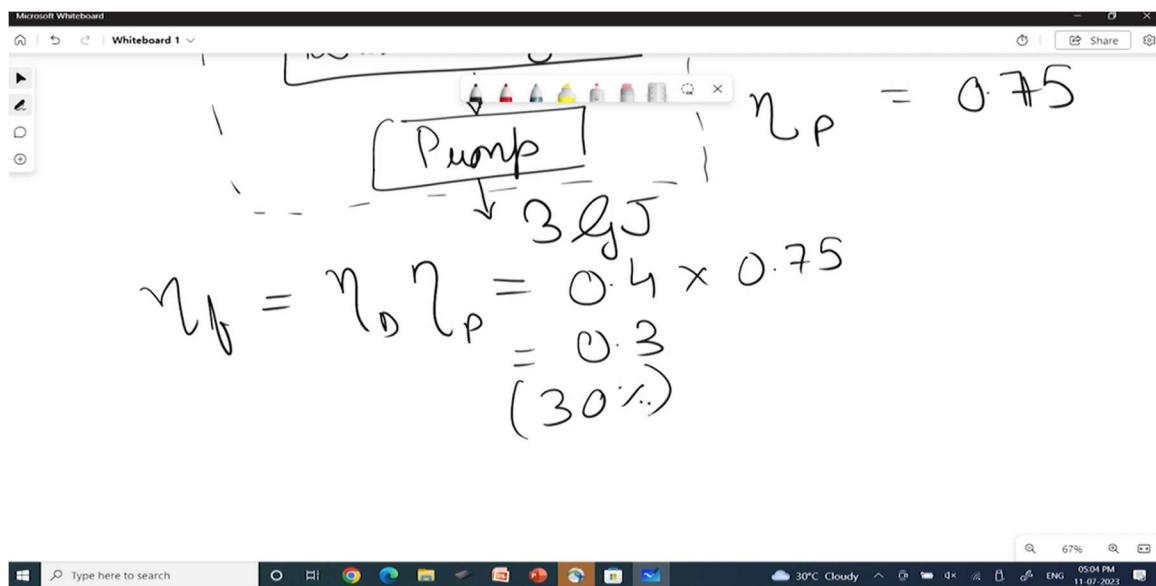 Microsoft Whiteboard
Whiteboard 1
Share
η_P = 0.75
Pump
3 GJ
η_f = η_D η_P = 0.4 × 0.75
= 0.3
(30%)
67%
Type here to search
30°C Cloudy
ENG
05:04 PM
11-07-2023